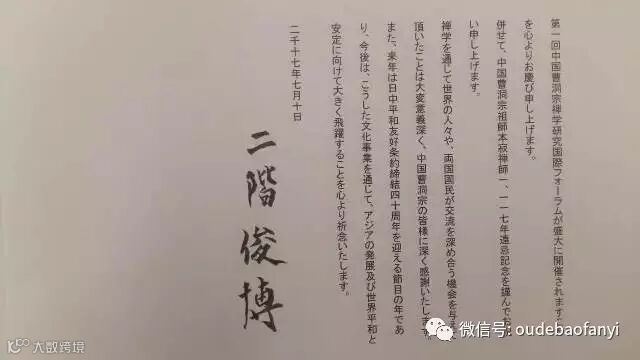 第一回中国曹洞宗禅学研究国際フォーラムが盛大に開催されます
を心よりお慶び申し上げます。
併せて、中国曹洞宗祖師本寂禅師一、一一七年遠忌記念を謹んでお
い申し上げます。
禅学を通じて世界の人々や、両国国民が交流を深め合う機会を与
頂いたことは大変意義深く、中国曹洞宗の皆様に深く感謝いたします。
また、来年は日中平和友好条約締結四十周年を迎える節目の年であ
り、今後は、こうした文化事業を通じて、アジアの発展及び世界平和と
安定に向けて大きく飛躍することを心より祈念いたします。
二千十七年七月十日
二階俊博
微信号: oudebaofanyi
大数跨境